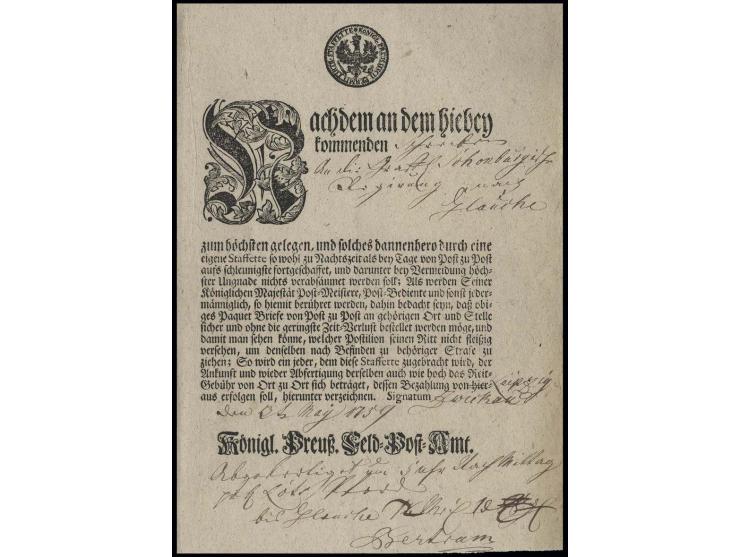 Nachdem an dem hiebey
kommenden Schreiben
An die Gräfl. Schönburgische
Regirung nach
Glauche
zum höchsten gelegen, und solches dannenhero durch eine
eigene Staffette so wohl zu Nachtszeit als bey Tage von Post zu Post
aufs schleunigste fortgeschaffet, und darunter bey Vermeidung höch-
ster Ungnade nichts verabsäumet werden soll; Als werden Seiner
Königlichen Majestät Post-Meistere, Post-Bediente und sonst jeder-
männiglich, so hiemit berühret werden, dahin bedacht seyn, daß obi-
ges Paquet Briefe von Post zu Post an gehörigen Ort und Stelle
sicher und ohne die geringste Zeit-Verlust bestellet werden möge, und
damit man sehen könne, welcher Postilion seinen Ritt nicht fleißig
versehen, um denselben nach Befinden zu behöriger Strafe zu
ziehen; So wird ein jeder, dem diese Staffette zugebracht wird, der
Ankunft und wieder Abfertigung derselben auch wie hoch das Reit-
Gebühr von Ort zu Ort sich beträget, dessen Bezahlung von hier-
aus erfolgen soll, hierunter verzeichnen. Signatum Leipzig
Zwickau
den May 1759
Königl. Preuß. Feld-Post-Amt.
Abgefertiget um Uhr Nachmittag
bis Glauche
Bertram